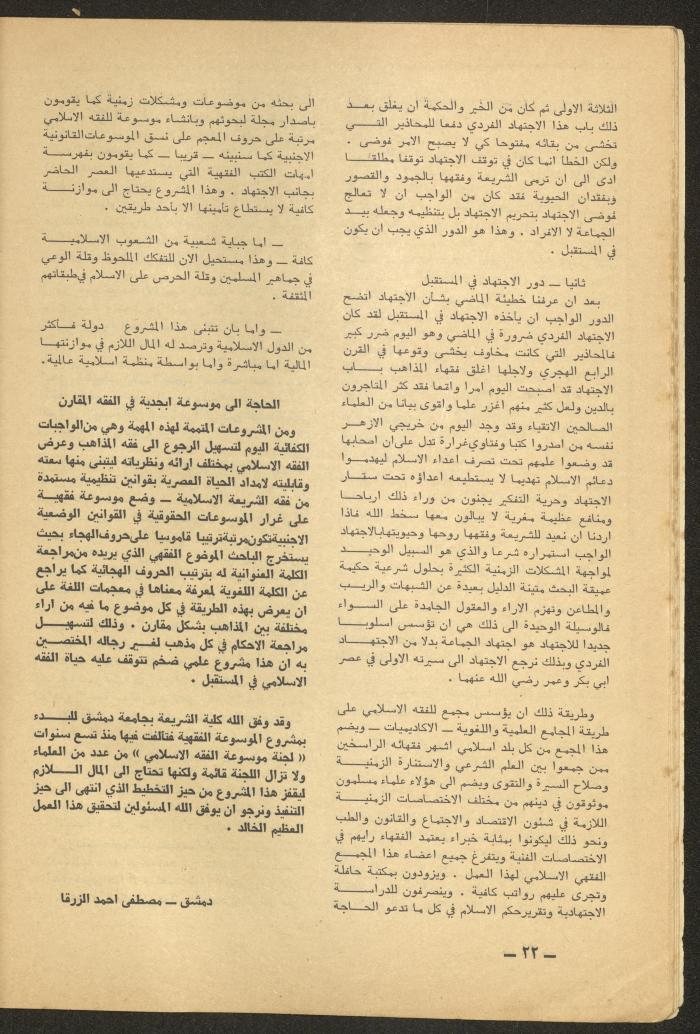 الثلاثة الاولى ثم كان من الخير والحكمة ان يغلق بعد
ذلك باب هذا الاجتهاد الفردي دفعا للمحاذير التي
تخشى من بقائه مفتوحا كي لا يصبح الامر فوضى .
ولكن الخطا انما كان في توقف الاجتهاد توقفا مطلقا
ادى الى ان ترمى الشريعة وفقهها بالجمود والقصور
وبفقدان الحيوية فقد كان من الواجب ان لا تعالج
فوضى الاجتهاد بتحريم الاجتهاد بل بتنظيمه وجعله بيد
الجماعة لا الافراد . وهذا هو الدور الذي يجب ان يكون
في المستقبل .
ثانيا — دور الاجتهاد في المستقبل
بعد ان عرفنا خطيئة الماضي بشأن الاجتهاد اتضح
الدور الواجب ان يأخذه الاجتهاد في المستقبل لقد كان
الاجتهاد الفردي ضرورة في الماضي وهو اليوم ضرر كبير
فالمحاذير التي كانت مخاوف يخشى وقوعها في القرن
الرابع الهجري ولاجلها اغلق فقهاء المذاهب بـــاب
الاجتهاد قد اصبحت اليوم امرا واقعا فقد كثر المتاجرون
بالدين ولعل كثير منهم اغزر علما واقوى بيانا من العلماء
الصالحين الاتقياء وقد وجد اليوم من خريجي الازهر
نفسه من اصدروا كتبا وفتاوي غرارة تدل على ان اصحابها
قد وضعوا علمهم تحت تصرف اعداء الاسلام ليهدموا
دعائم الاسلام تهديما لا يستطيعه اعداؤه تحت ستار
الاجتهاد وحرية التفكير يجنون من وراء ذلك ارباحا
ومنافع عظيمة مغرية لا يبالون معها سخط الله فاذا
اردنا ان نعيد للشريعة وفقهها روحها وحيويتها بالاجتهاد
الواجب استمراره شرعا والذي هو السبيل الوحيد
لمواجهة المشكلات الزمنية الكثيرة بحلول شرعية حكيمة
عميقة البحث متينة الدليل بعيدة عن الشبهات والريب
والمطاعن وتهزم الاراء والعقول الجامدة على الســواء
فالوسيلة الوحيدة الى ذلك هي ان نؤسس اسلوبــا
جديدا للاجتهاد هو اجتهاد الجماعة بدلا من الاجتهــاد
الفردي وبذلك نرجع الاجتهاد الى سيرته الاولى في عصر
ابي بكر وعمر رضي الله عنهما .
وطريقة ذلك ان يؤسس مجمع للفقه الاسلامي على
طريقة المجامع العلمية واللغوية — الاكاديميات — ويضم
هذا المجمع من كل بلد اسلامي اشهر فقهائه الراسخين
ممن جمعوا بين العلم الشرعي والاستنارة الزمنيــة
وصلاح السيرة والتقوى ويضم الى هؤلاء علماء مسلمون
موثوقون في دينهم من مختلف الاختصاصات الزمنيــة
اللازمة في شئون الاقتصاد والاجتماع والقانون والطب
ونحو ذلك ليكونوا بمثابة خبراء يعتمد الفقهاء رايهم في
الاختصاصات الفنية ويتفرغ جميع اعضاء هذا المجمــع
الفقهي الاسلامي لهذا العمل . ويزودون بمكتبة حافلة
وتجرى عليهم رواتب كافية . وينصرفون للدراســـة
الاجتهادية وتقرير حكم الاسلام في كل ما تدعو الحــاجة
الى بحثه من موضوعات ومشكلات زمنية كما يقومون
باصدار مجلة لبحوثهم وبانشاء موسوعة للفقه الاسلامي
مرتبة على حروف المعجم على نسق الموسوعات القانونية
الاجنبية كما سنبينه — قريبا — كما يقومون بفهرســة
امهات الكتب الفقهية التي يستدعيها العصر الحاضر
بجانب الاجتهاد . وهذا المشروع يحتاج الى موازنــة
كافية لا يستطاع تأمينها الا بأحد طريقين .
— اما جباية شعبية من الشعوب الاسلاميــــة
كافة — وهذا مستحيل الان للتفكك الملحوظ وقلة الوعي
في جماهير المسلمين وقلة الحرص على الاسلام في طبقاتهم
المثقفة .
— واما بان تتبنى هذا المشروع دولة فــأكثر
من الدول الاسلامية وترصد له المال اللازم في موازنتها
المالية اما مباشرة واما بواسطة منظمة اسلامية عالمية.
الحاجة الى موسوعة ابجدية في الفقه المقارن
ومن المشروعات المتممة لهذه المهمة وهي من الواجبات
الكفائية اليوم لتسهيل الرجوع الى فقه المذاهب وعرض
الفقه الاسلامي بمختلف ارائه ونظرياته ليتبنى منها سعته
وقابليته لامداد الحياة العصرية بقوانين تنظيمية مستمدة
من فقه الشريعة الاسلامية — وضع موسوعة فقهيــة
على غرار الموسوعات الحقوقية في القوانين الوضعية
الاجنبية تكون مرتبة ترتيبا قاموسيا على حروف الهجاء بحيث
يستخرج الباحث الموضوع الفقهي الذي يريده من مراجعة
الكلمة العنوانية له بترتيب الحروف الهجائية كما يراجع
عن الكلمة اللغوية لمعرفة معناها في معجمات اللغة على
ان يعرض بهذه الطريقة في كل موضوع ما فيه من اراء
مختلفة بين المذاهب بشكل مقارن . وذلك لتسهيــل
مراجعة الاحكام في كل مذهب لغــير رجاله المختصــين
به ان هذا مشروع علمي ضخم تتوقف عليه حياة الفقه
الاسلامي في المستقبل .
وقد وفق الله كلية الشريعة بجامعة دمشق للبــدء
بمشروع الموسوعة الفقهية فتالفت فيها منذ تسع سنوات
(( لجنة موسوعة الفقه الاسلامي )) من عدد من العلماء
ولا تزال اللجنة قائمة ولكنها تحتاج الى المال الـــلازم
ليقفز هذا المشروع من حيز التخطيط الذي انتهى الى حيز
التنفيذ ونرجو ان يوفق الله المسئولين لتحقيق هذا العمل
العظيم الخالد .
دمشق — مصطفى احمد الزرقا
— ٢٢ —